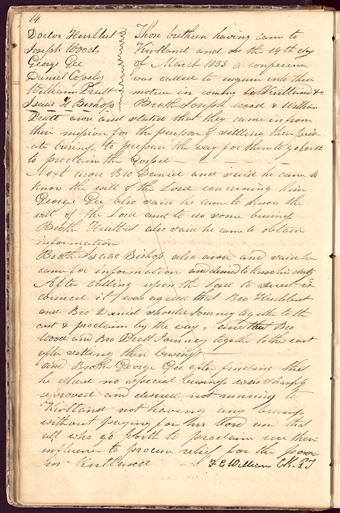 14
Doctor Hurlbut
Joseph Wood
George Gee
Daniel Copley
William Pratt
Isaac H Bishop
These brethren having came to
Kirtland and on the 14th day
of March 1833 a conference
was called to enquire into their
motive in coming to Kirtland &c
Broth Joseph wood & William
Pratt arose and stated that they came in from
their mission for the purpose of settleing their
buisness to prepare the way for them to go forth
to proclaim the Gospel
Next arose Bro Daniel and said he came to
know the will of the Lord concerning him
George Gee also said he came to know the
will of the Lord and to do some buisness
Broth Hurlbut also said he came to obtain
information
Broth Isaac Bishop also arose and said he
came for information and desired to know his duty
After calling upon the Lord to direct in
council it was agreed that Bro Hurlbut
and Bro Daniel should Journey together to the
east & proclaim by the way, and that Bro
Wood and Bro Pratt Journey together to the east
after settling their buisness
and Broth George Gee after finding that
he had no special buisness was sharply
reproved and advised not running to
Kirtland not having any buisness
without praying for this Lord and that
all who go forth to proclaim use their
influence to procure relief for the poor
in Kirtland
F G William Clk. P.T